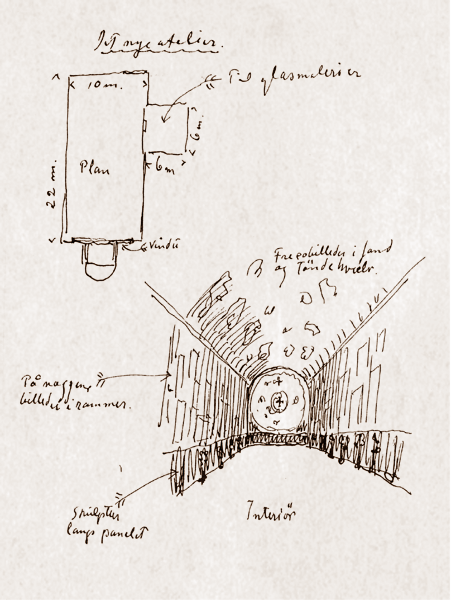 Det nye atelier.
Til glasmalerier
10 m.
6 m.
6 m
22 m.
Plan
Vindu
i fond
og Töndehvælv.
På væggene
billeder i rammer.
Skulptur
langs panelet
Interiör